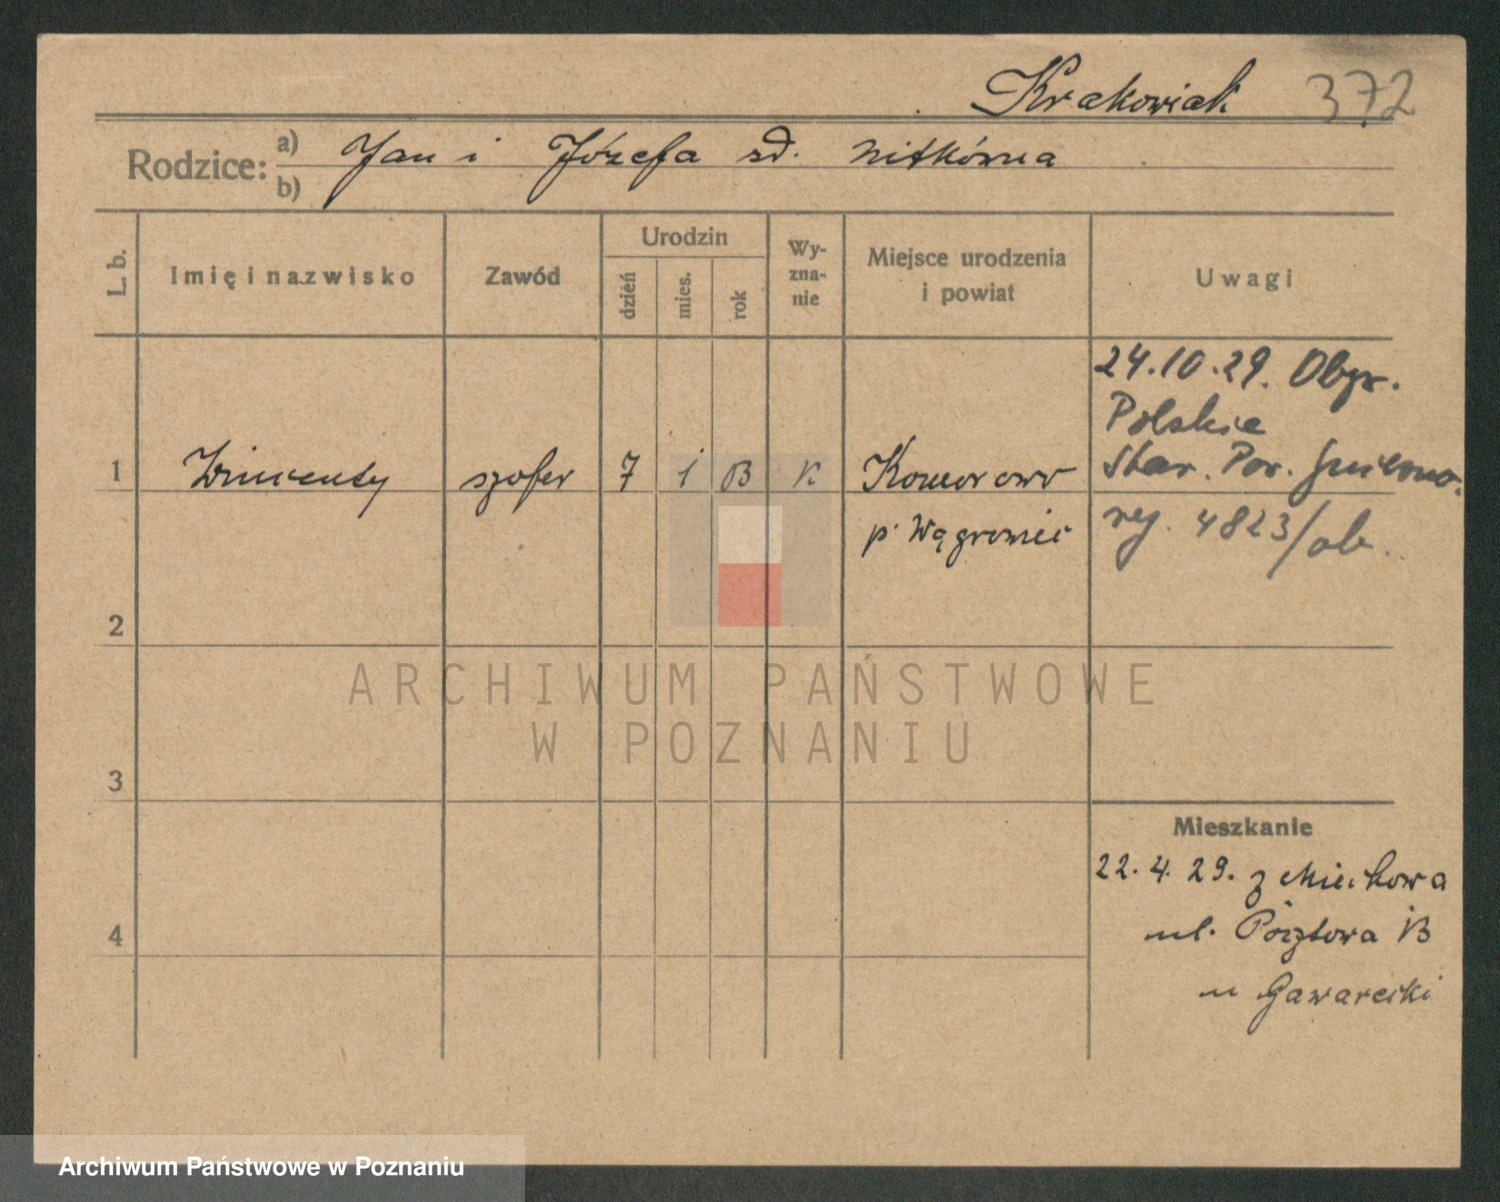 Krakowiak 372
Rodzice: a) Jan i Józefa zd. Nitkówna
b)
L. b.
Imię i nazwisko
Zawód
Urodzin
dzień
mies.
rok
Wy-
zna-
nie
Miejsce urodzenia
i powiat
Uwagi
1 Wincenty szofer 7 1 13 K Komorowo
p. Wągrowiec
24.10.29. Obyw.
Polskie
Star. Pow. Gniezno.
rej. 4823/ob.
2
3
4
Mieszkanie
22. 4. 29. z Miechowa
ul. Pocztowa 13
u Gawarecki
ARCHIWUM PAŃSTWOWE
W POZNANIU
Archiwum Państwowe w Poznaniu